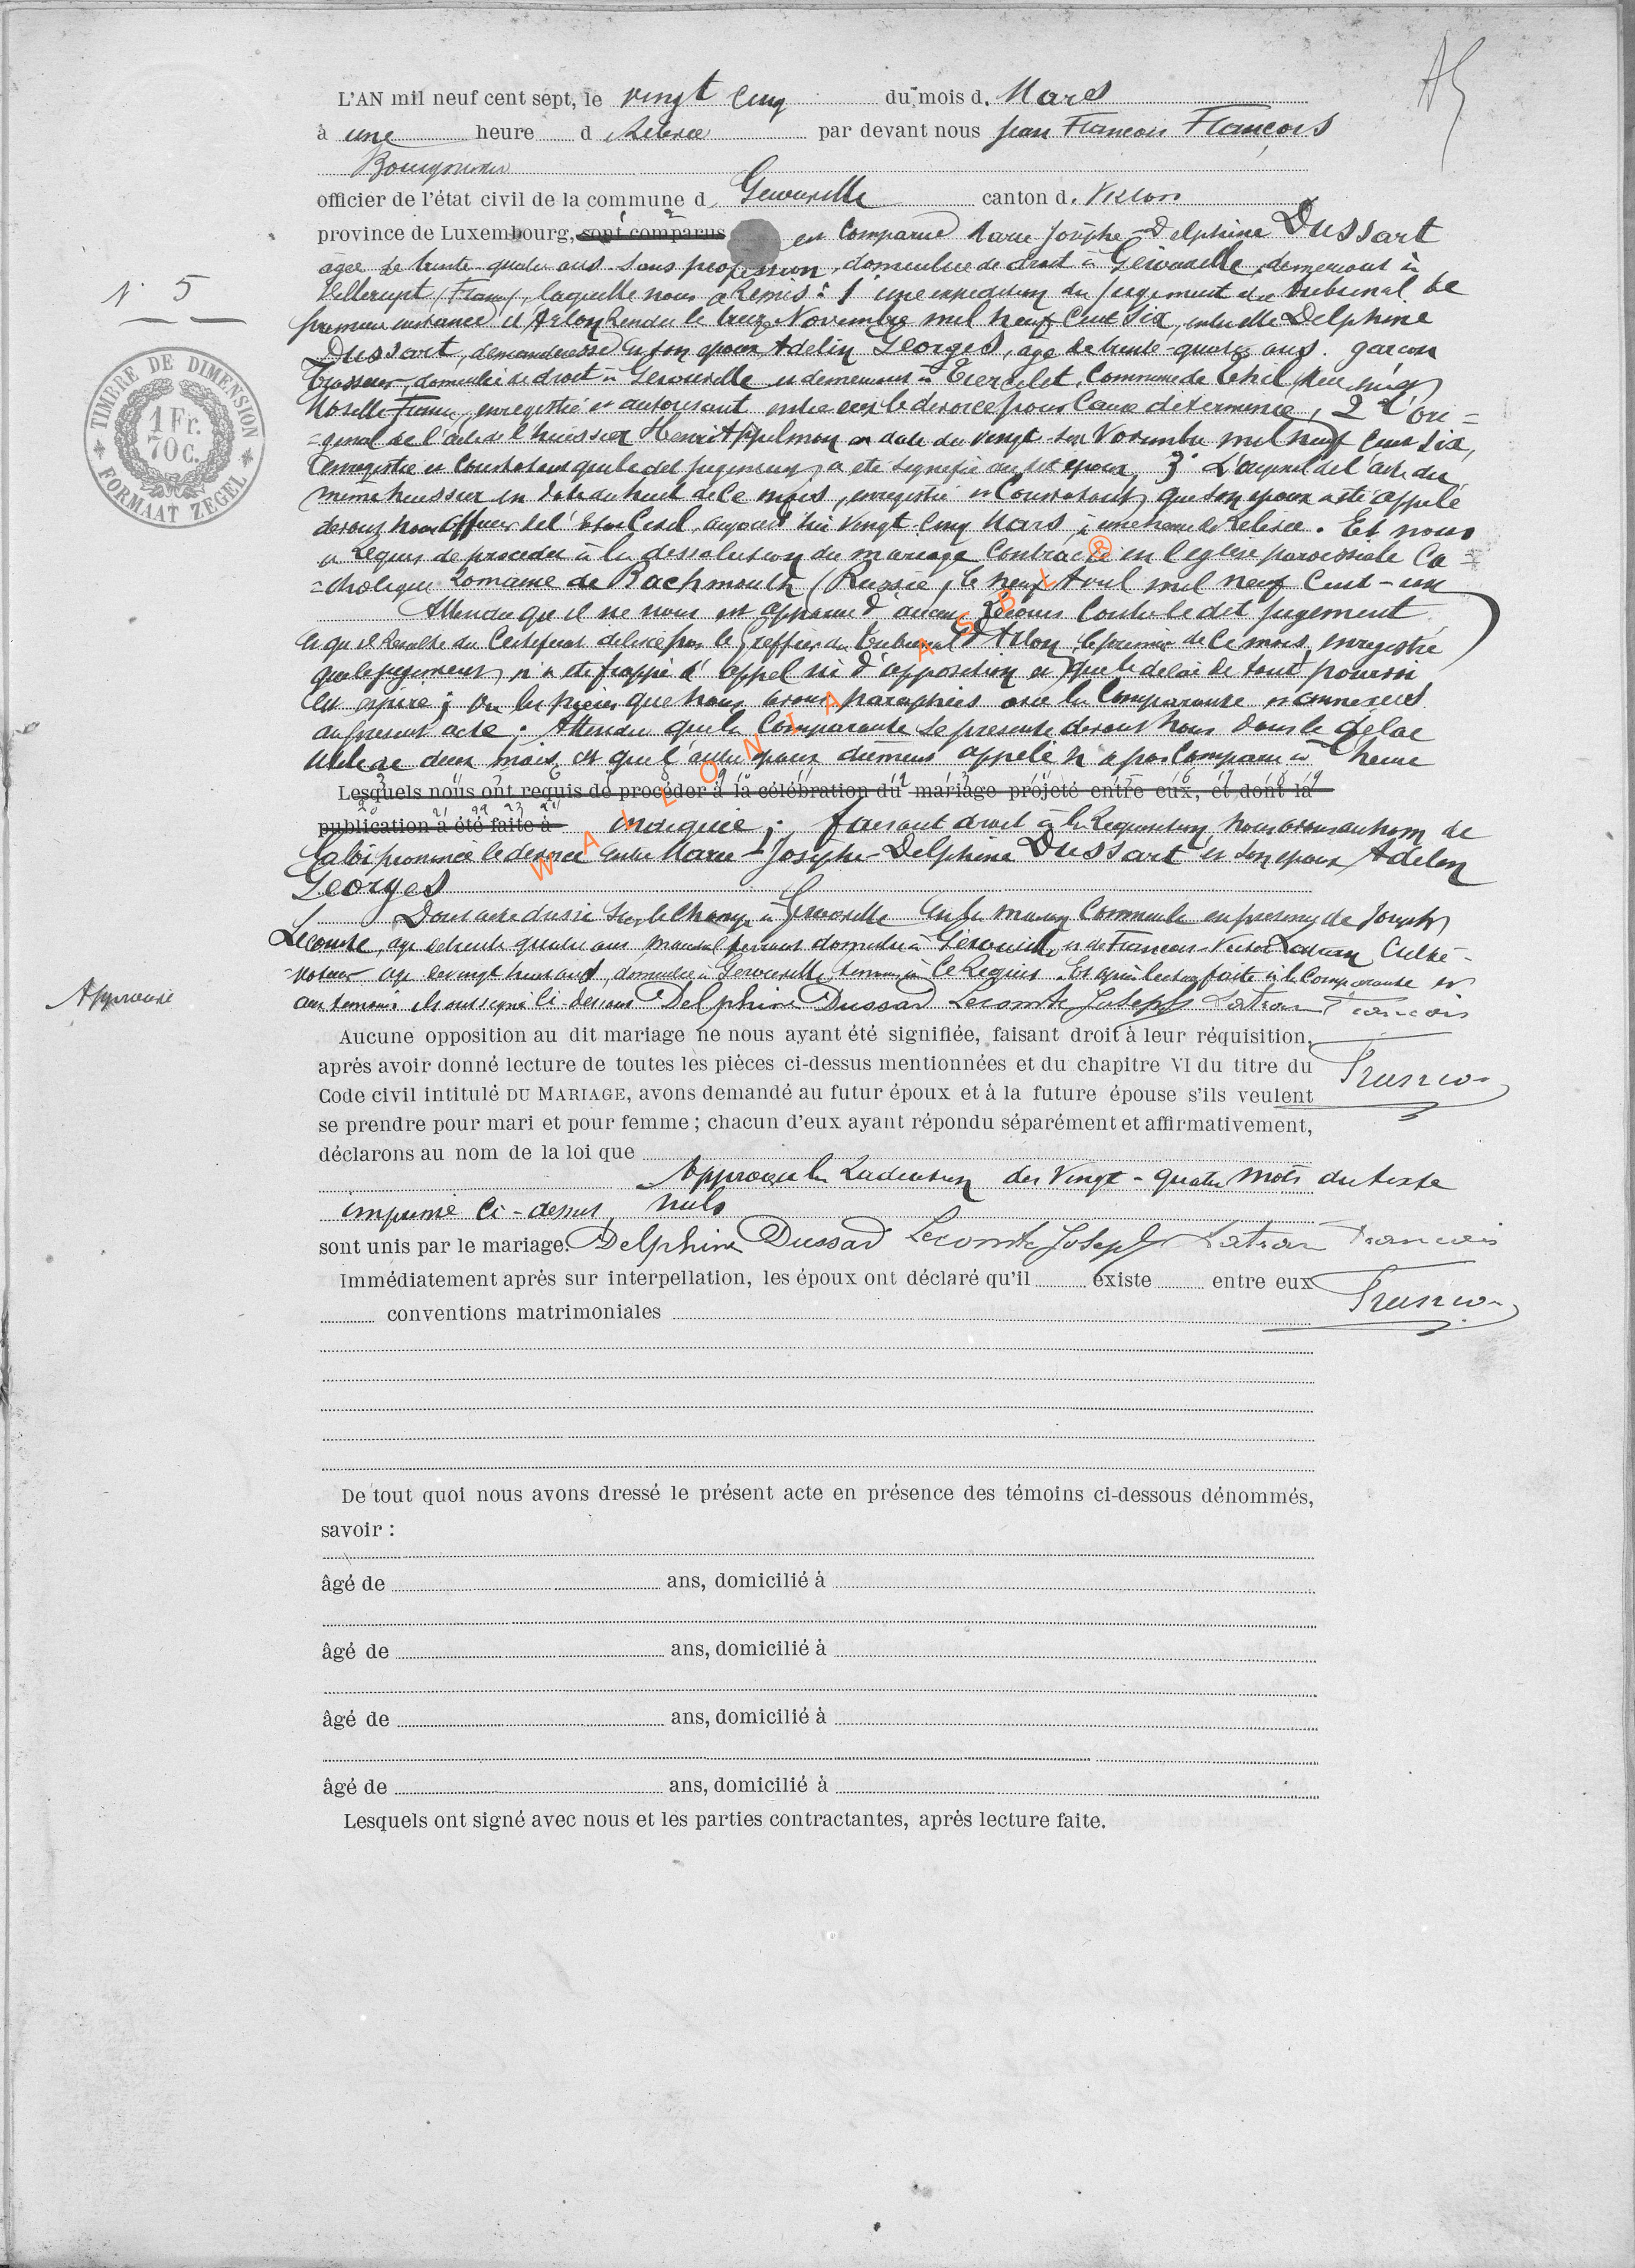 L'AN mil neuf cent sept, le vingt cinq du mois d. Mars
à une heure d Relevée par devant nous Jean François François
Bourgmestre
officier de l'état civil de la commune d Gérouville canton d. Virton
province de Luxembourg, sont comparus est Comparue Marie Josèphe Delphine Dussart
N° 5
âgée de trente quatre ans sans profession, domiciliée de droit à Gérouville, demeurant à
Villerupt (France), laquelle nous a Remis : 1° une expédition du jugement du tribunal de
première instance d'Arlon Rendu le treize Novembre mil neuf Cent Six, entre elle Delphine
Dussart, demanderesse et son époux Adelin Georges, âgé de trente-quatre ans. garçon
brasseur domicilié de droit à Gérouville et demeurant à Tiercelet, Commune de Thil
Moselle France, enregistré et autorisant entre eux le divorce pour Cause déterminée, 2° l'ori=
=ginal de l'acte de l'huissier Henri Appelman en date du vingt six Novembre mil neuf Cent Six,
enregistré et Constatant que le dit jugement a été signifié au dit époux, 3° L'original de l'acte du
même huissier en date du huit de Ce mois, enregistré et Constatant que son époux a été appelé
devant nous Officier de l'Etat Civil, aujourd'hui Vingt Cinq Mars, à une heure de Relevée. Et nous
a Requis de procéder à la dissolution du mariage Contracté en l'église paroissiale Ca=
=tholique Romaine de Bachmouth (Russie), le neuf Avril mil neuf Cent-un
Attendu que il ne nous est apparu d'aucun Recours Contre le dit jugement
et qu'il Résulte du Certificat délivré par le Greffier du tribunal d'Arlon, le premier de Ce mois, enregistré
que le jugement n'a été frappé d'appel ni d'opposition et que le délai de tout pourvoi
est expiré ; Vu les pièces que nous avons paraphées avec la Comparante et annexées
au présent acte ; Attendu que la Comparante se présente devant Nous dans le délai
utile de deux mois, et que l'autre époux dûment appelé n'a pas Comparu à l'heure
Lesquels nous ont requis de procéder à la célébration du mariage projeté entre eux, et dont la
publication a été faite à indiquée ; faisant droit à la Réquisition, nous avons au nom de
la loi prononcé le divorce entre Marie-Josèphe-Delphine Dussart et son époux Adelin
Georges
Dont acte dressé sur le champ à Gérouville en la maison Communale en présence de Joseph
Lecomte, âgé de trente quatre ans, domicilié à Gérouville et de François Victor Latran, Culti-
-vateur âgé de vingt huit ans, domicilié à Gérouville, témoins à Ce Requis. Et après lecture faite à la Comparante et
aux témoins ils ont signé Ci-dessous Delphine Dussard Lecomte Joseph Latran François
Approuvé
Aucune opposition au dit mariage ne nous ayant été signifiée, faisant droit à leur réquisition,
après avoir donné lecture de toutes les pièces ci-dessus mentionnées et du chapitre VI du titre du
François
Code civil intitulé DU MARIAGE, avons demandé au futur époux et à la future épouse s'ils veulent
se prendre pour mari et pour femme ; chacun d'eux ayant répondu séparément et affirmativement,
déclarons au nom de la loi que
Approuvé la Radiation des Vingt-quatre mots du texte
imprimé Ci-dessus, nuls
sont unis par le mariage. Delphine Dussard Lecomte Joseph Latran François
Immédiatement après sur interpellation, les époux ont déclaré qu'il existe entre eux
François
conventions matrimoniales
De tout quoi nous avons dressé le présent acte en présence des témoins ci-dessous dénommés,
savoir :
âgé de ans, domicilié à
âgé de ans, domicilié à
âgé de ans, domicilié à
âgé de ans, domicilié à
Lesquels ont signé avec nous et les parties contractantes, après lecture faite.
TIMBRE DE DIMENSION
1 Fr.
70 c.
FORMAAT ZEGEL
WALLONIA ASBL ®